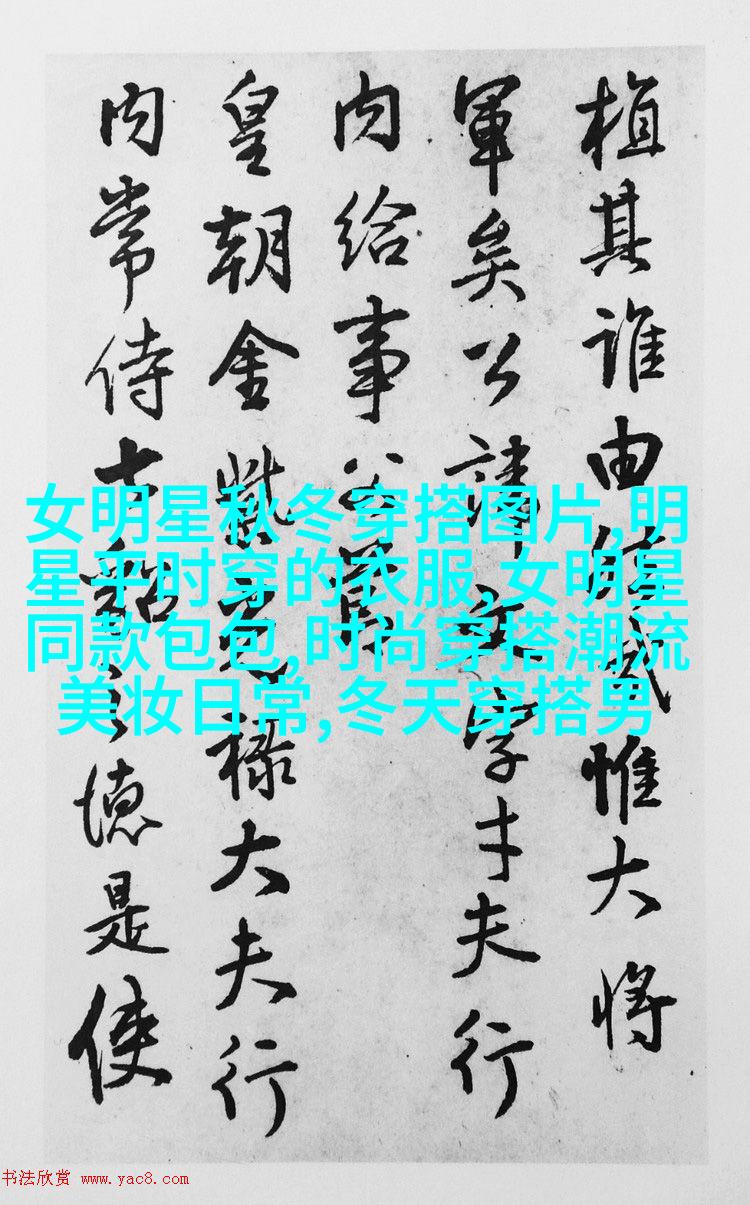 植其誰由惟大將
軍矣公諱文字才夫行
內給事
皇朝金紫光祿大夫行
內常侍右貂德是使
女明星秋冬穿搭图片,明
星平时穿的衣服,女明星
同款包包,时尚穿搭潮流
美妆日常,冬天穿搭男
书法欣赏 www.yac8.com